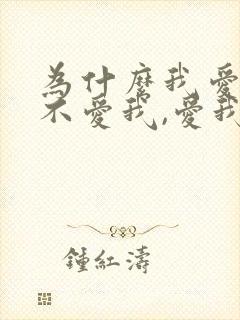 為什麼我愛
不愛我,愛我
鍾紅濤